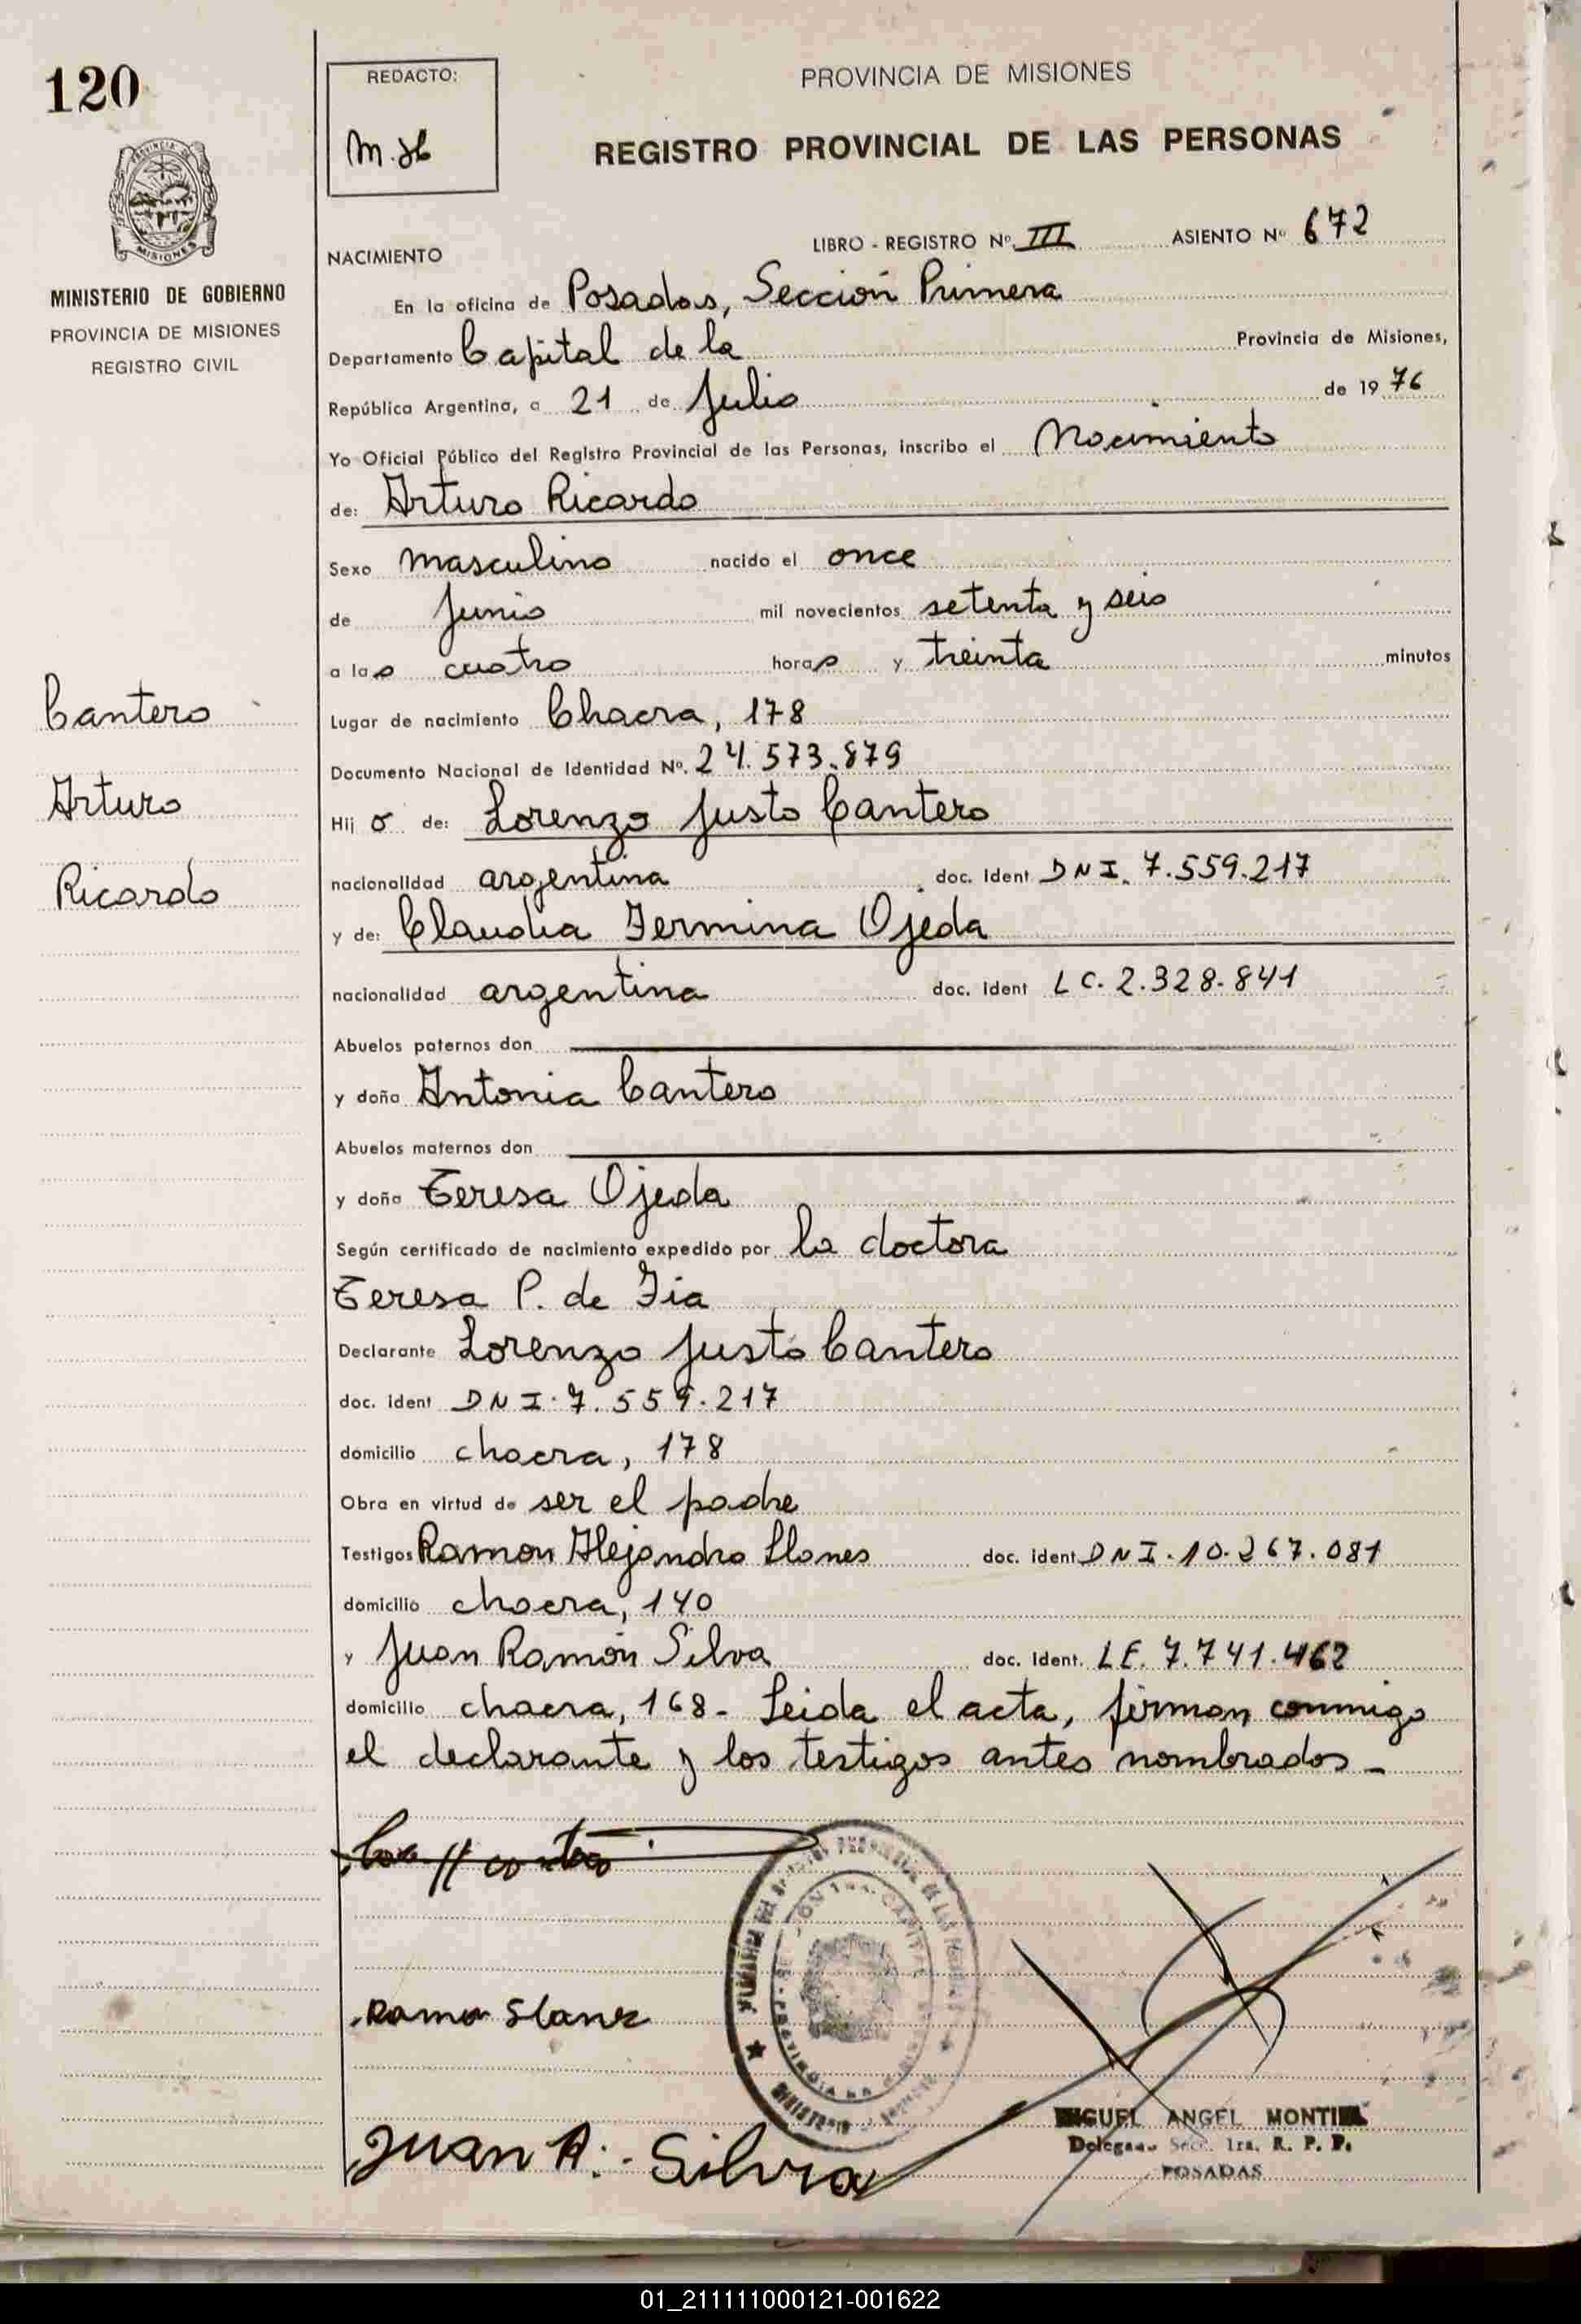 120
REDACTO:
M.H
PROVINCIA DE MISIONES
REGISTRO PROVINCIAL DE LAS PERSONAS
PROVINCIA DE
MISIONES
MINISTERIO DE GOBIERNO
PROVINCIA DE MISIONES
REGISTRO CIVIL
NACIMIENTO
LIBRO - REGISTRO Nº III ASIENTO Nº 672
En la oficina de Posadas, Sección Primera
Departamento Capital de la Provincia de Misiones,
República Argentina, a 21 de Julio de 1976
Yo Oficial Público del Registro Provincial de las Personas, inscribo el Nacimiento
de: Arturo Ricardo
Sexo masculino nacido el once
de Junio mil novecientos setenta y seis
a las cuatro horas y treinta minutos
Cantero
Lugar de nacimiento Chacra, 178
Documento Nacional de Identidad Nº. 24.573.879
Arturo
Hijo de: Lorenzo Justo Cantero
Ricardo
nacionalidad argentina doc. ident DNI. 7.559.217
y de: Claudia Fermina Ojeda
nacionalidad argentina doc. ident LC. 2.328.841
Abuelos paternos don
y doña Antonia Cantero
Abuelos maternos don
y doña Teresa Ojeda
Según certificado de nacimiento expedido por la doctora
Teresa P. de Fia
Declarante Lorenzo Justo Cantero
doc. ident DNI. 7.559.217
domicilio chacra, 178
Obra en virtud de ser el padre
Testigos Ramon Alejandro Llanes doc. ident DNI. 10.267.081
domicilio chacra, 140
y Juan Ramón Silva doc. Ident. LE. 7.741.462
domicilio chacra, 168- Leida el acta, firman conmigo
el declarante y los testigos antes nombrados -
Ramon Slanes
Juan R. Silva
MIGUEL ANGEL MONTIEL
Delegado Secc. 1ra. R. P. P.
POSADAS
01_211111000121-001622